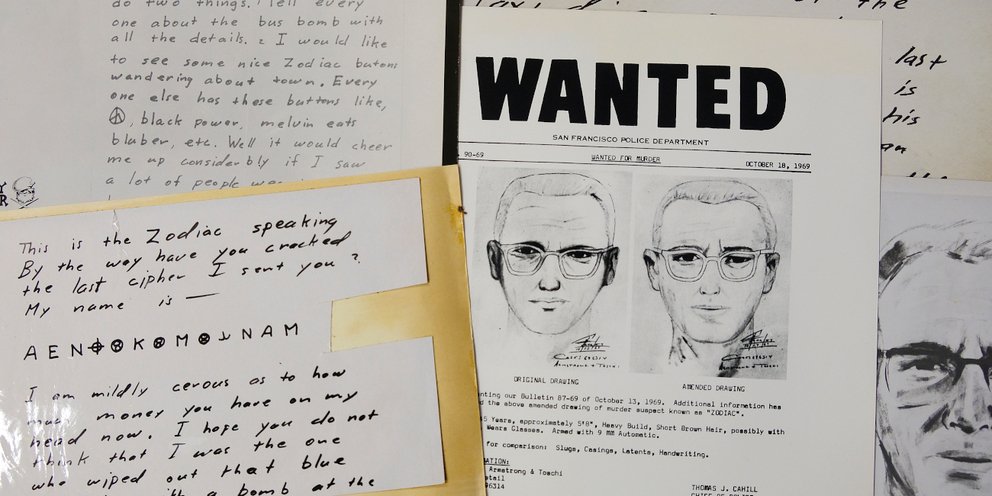 do two things. Tell every
one about the bus bomb with
all the details. 2 I would like
to see some nice Zodiac butons
wandering about town. Every
one else has these buttons like,
, black power, melvin eats
bluber, etc. Well it would cheer
me up considerbly if I saw
a lot of people
This is the Zodiac speaking
By the way have you cracked
the last cipher I sent you ?
My name is —
A E N ⊕ ⊗ K ⊗ M ⊗ ⅃ N A M
I am mildly cerous as to how
much money you have on my
head now. I hope you do not
think that I was the one
who wiped out that blue
with a bomb at the
WANTED
SAN FRANCISCO POLICE DEPARTMENT
90-69 WANTED FOR MURDER OCTOBER 18, 1969
ORIGINAL DRAWING AMENDED DRAWING
nting our Bulletin 87-69 of October 13, 1969. Additional information has
d the above amended drawing of murder suspect known as "ZODIAC".
45 Years, approximately 5'8", Heavy Build, Short Brown Hair, possibly with
Wears Glasses. Armed with 9 MM Automatic.
for comparison: Slugs, Casings, Latents, Handwriting.
ATION:
Armstrong & Toschi
etail
96314
THOMAS J. CAHILL
CHIEF OF POLICE
the
last
is
his
an